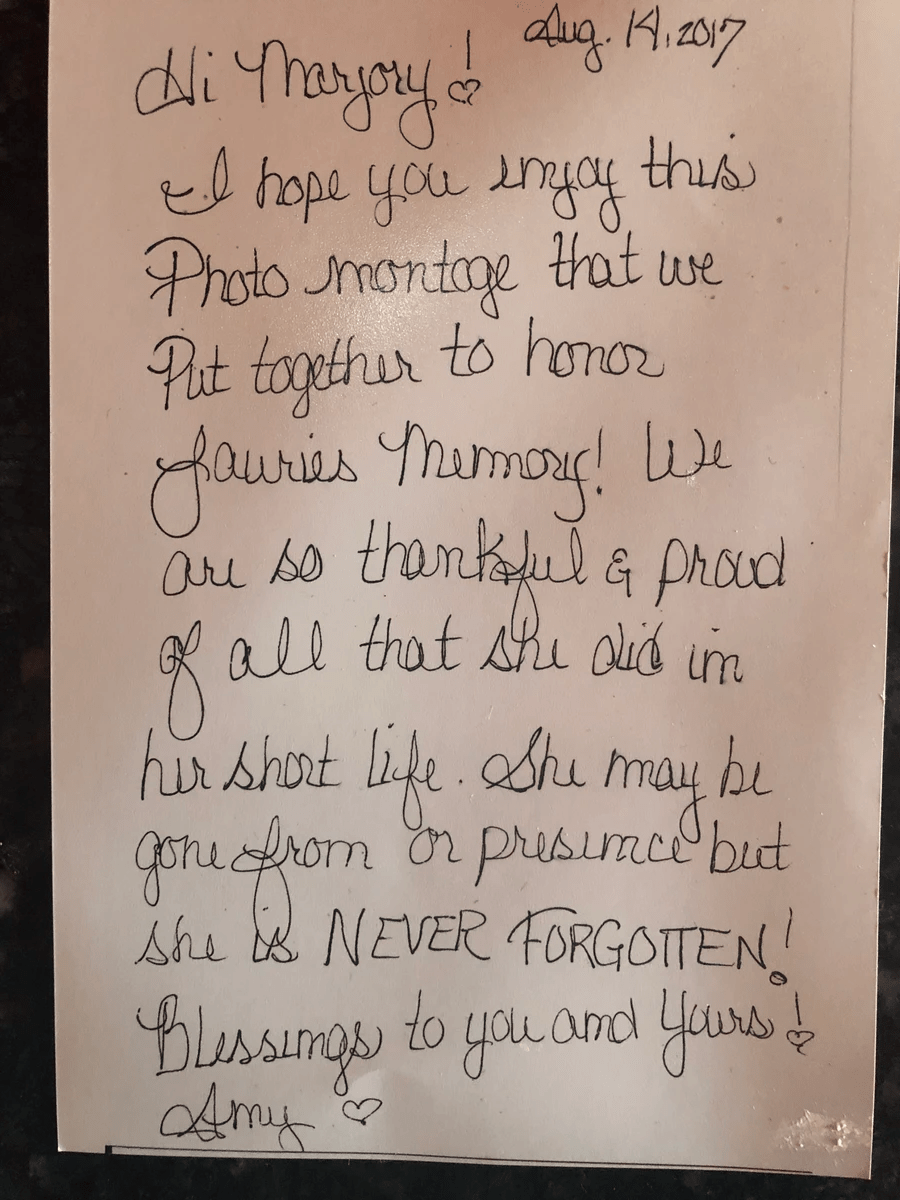 Aug. 14, 2017
Hi Marjory!
I hope you enjoy this
Photo montage that we
Put together to honor
Lauries Memory! We
are so thankful & proud
of all that she did in
her short life. She may be
gone from or presence but
she is NEVER FORGOTTEN!
Blessings to you and yours!
Amy ♡